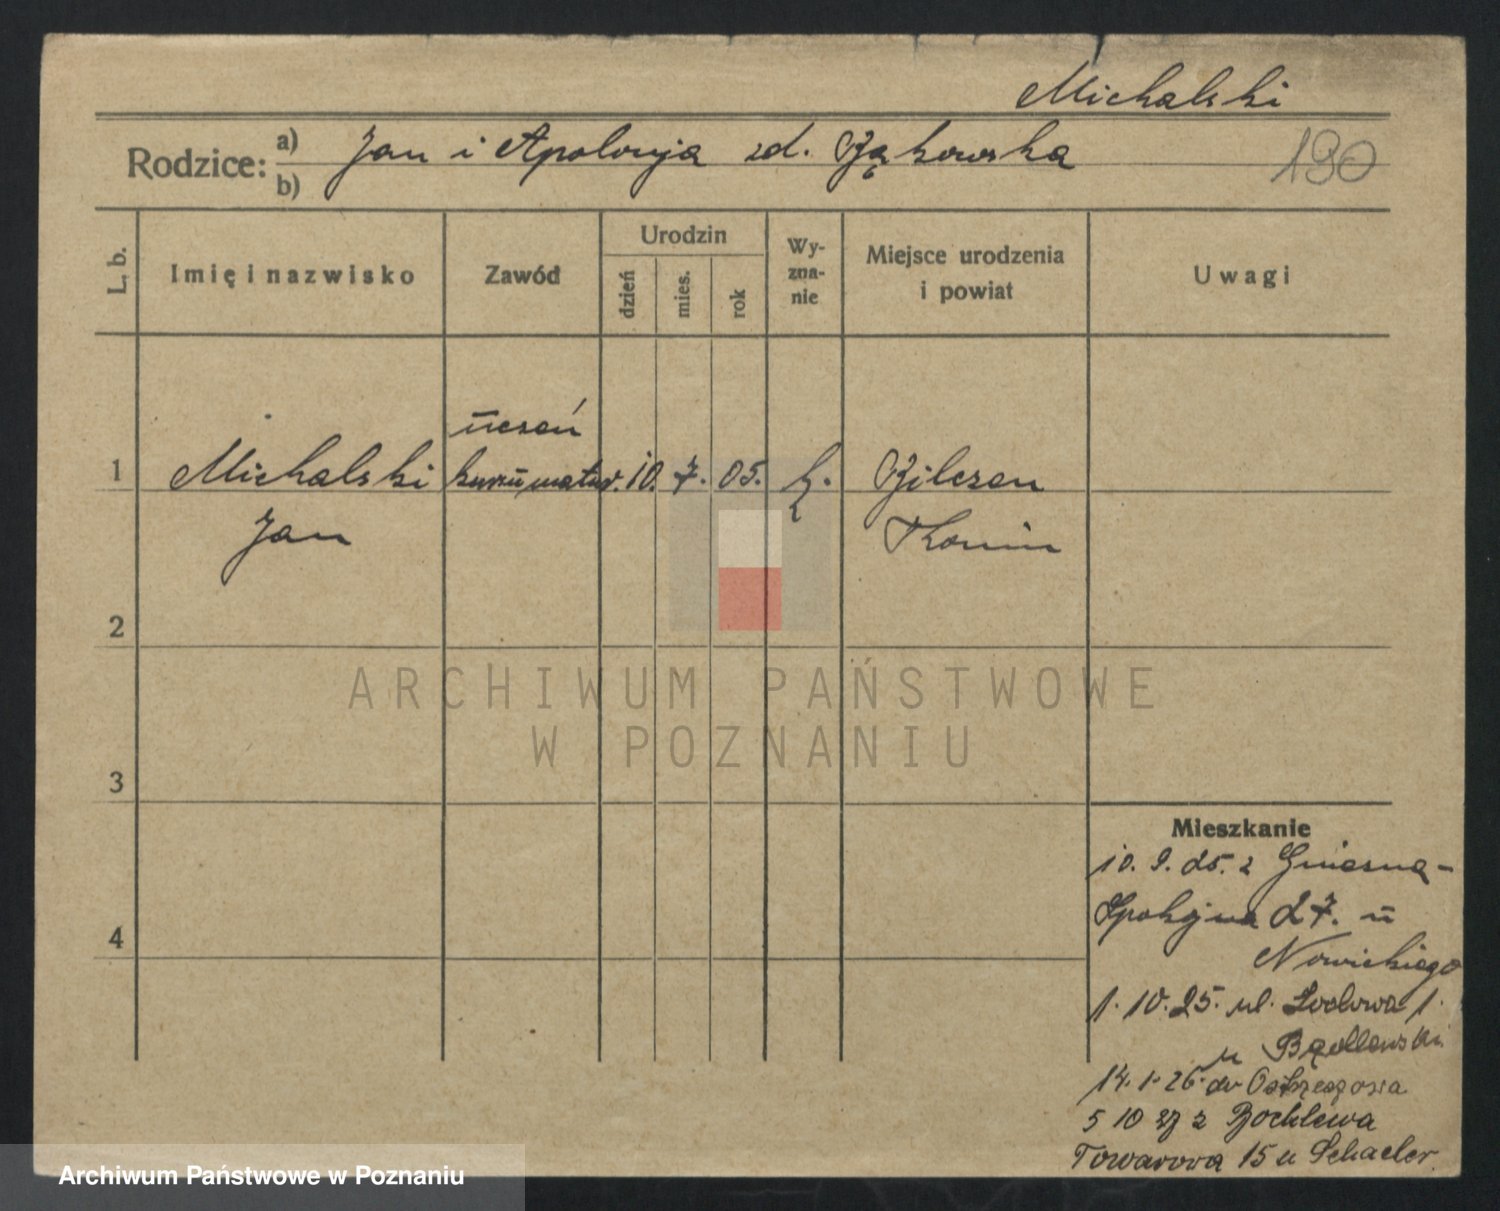 Michalski
Rodzice: a) Jan i Apolonja zd. Bąkowska
b)
190
L. b.
Imię i nazwisko
Zawód
Urodzin
dzień
mies.
rok
Wy-
zna-
nie
Miejsce urodzenia
i powiat
Uwagi
uczeń
1 Michalski 10. 7. 05. k. Bilczew
Jan Konin
2
3
4
ARCHIWUM PAŃSTWOWE
W POZNANIU
Mieszkanie
10. 9. 25. z Gniezna -
Spokojna 27. u
Nowickiego
1. 10. 25. ul. 1.
u
14. 1. 26. do Ostrzeszowa
5 10 z
Towarowa 15 u
Archiwum Państwowe w Poznaniu